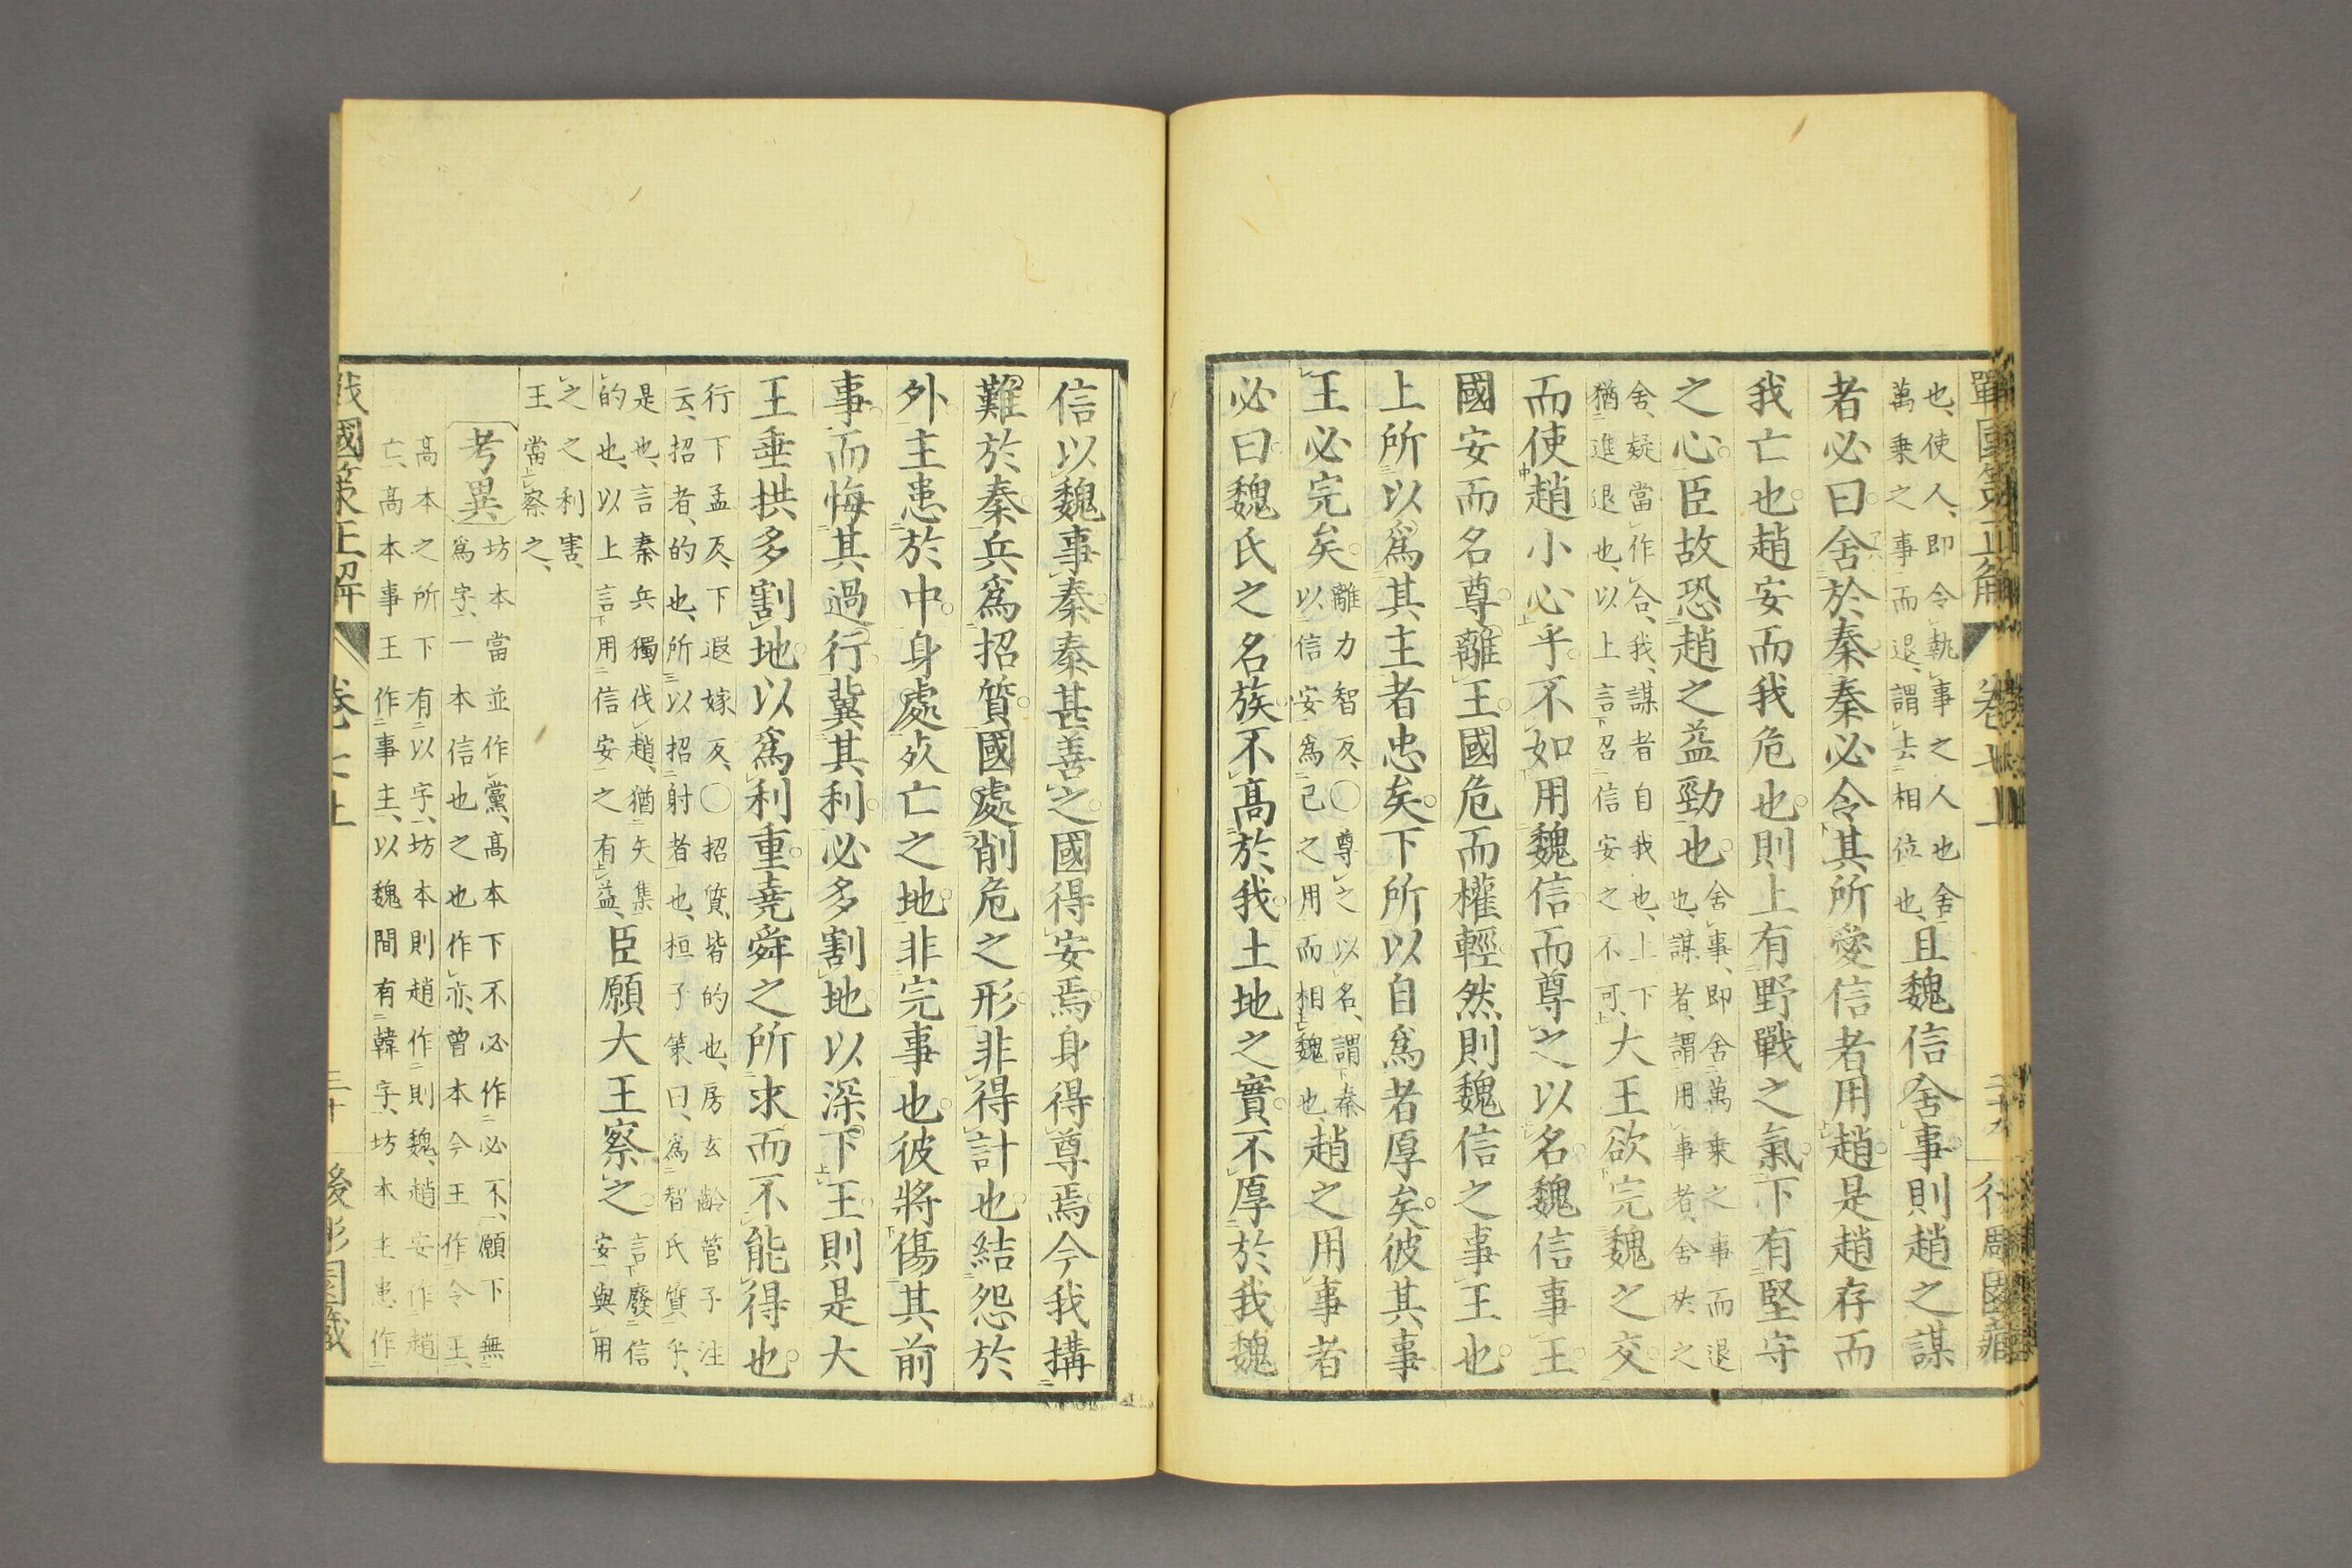 戰國策正解 卷七上 二十九
也、使人、即令執事之人也舍
萬乗之事而退、謂去相位也、
且魏信舍事則趙之謀
者必曰舍於秦秦必令其所愛信者用趙是趙存而
我亡也趙安而我危也則上有野戰之氣下有堅守
之心臣故恐趙之益勁也
舍事、即舍萬乗之事而退
也、謀者、謂用事者、舍於之
舍、疑當作合、我、謀者自我也、上下
猶進退也、以上言召信安之不可、
大王欲完魏之交
而使趙小心乎不如用魏信而尊之以名魏信事王
國安而名尊離王國危而權輕然則魏信之事王也
上所以爲其主者忠矣下所以自爲者厚矣彼其事
王必完矣
離力智反、○尊之以名、謂秦
以信安爲己之用而相魏也
趙之用事者
必曰魏氏之名族不髙於我土地之實不厚於我魏
信以魏事秦秦甚善之國得安焉身得尊焉今我搆
難於秦兵爲招質國處削危之形非得計也結怨於
外主患於中身處死亡之地非完事也彼將傷其前
事而悔其過行冀其利必多割地以深下王則是大
王垂拱多割地以爲利重堯舜之所求而不能得也
行下孟反、下遐嫁反、○招質、皆的也、房玄齡管子注
云、招者、的也、所以招射者也、桓子策曰、爲智氏質乎、
是也、言秦兵獨伐趙、猶矢集
的也、以上言用信安之有益、
臣願大王察之
言廢信
安與用
之之利害、
王當察之、
考異
坊本當並作黨、髙本下不必作必不、願下無
爲字、一本信也之也作亦、曾本今王作令王、
髙本之所下有以字、坊本則趙作則魏、趙安作趙
亡、髙本事王作事主、以魏間有韓字、坊本主患作
戰國策正解 卷七上 三十